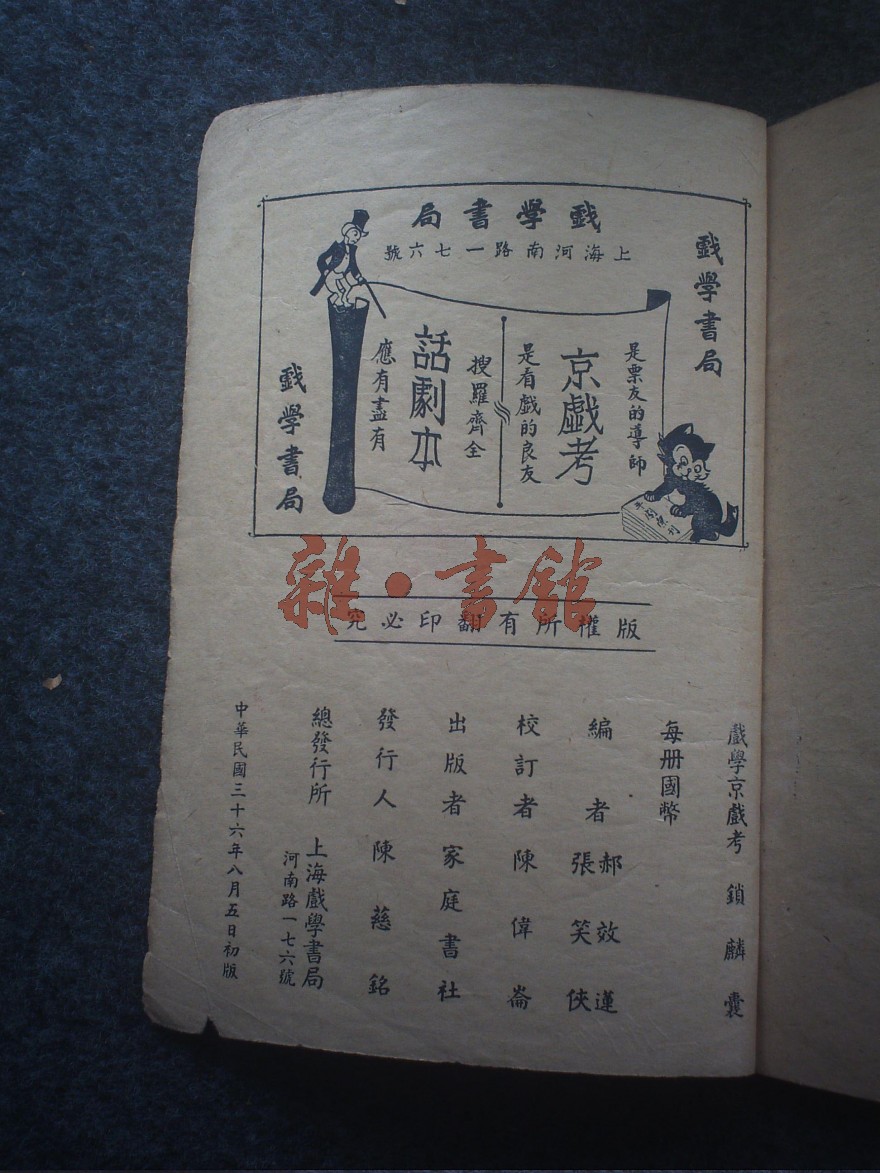 戲學書局
上海河南路一七六號
戲學書局
是票友的導師
京戲考
是看戲的良友
搜羅齊全
話劇本
應有盡有
戲學書局
雜·書館
版權所有翻印必究
戲學京戲考 鎖麟囊
每册國幣
編者 郝效蓮
張笑俠
校訂者 陳偉崙
出版者 家庭書社
發行人 陳慈銘
總發行所 上海戲學書局
河南路一七六號
中華民國三十六年八月五日初版